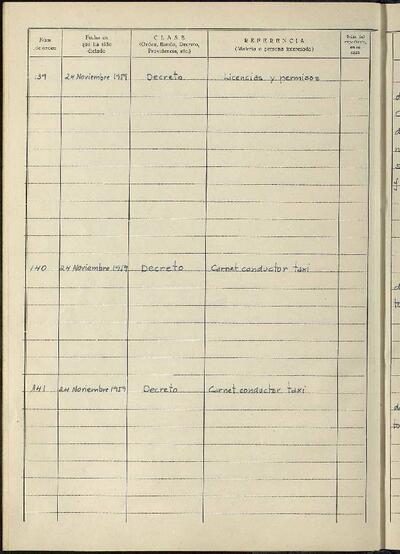 Núm. de orden
Fecha en que ha sido dictado
CLASE (Orden, Bando, Decreto, Providencia, etc.)
REFERENCIA (Materia o persona interesada)
39 24 Noviembre 1959 Decreto Licencias y permisos
140 24 Noviembre 1959 Decreto Carnet conductor taxi
141 24 Noviembre 1959 Decreto Carnet conductor taxi